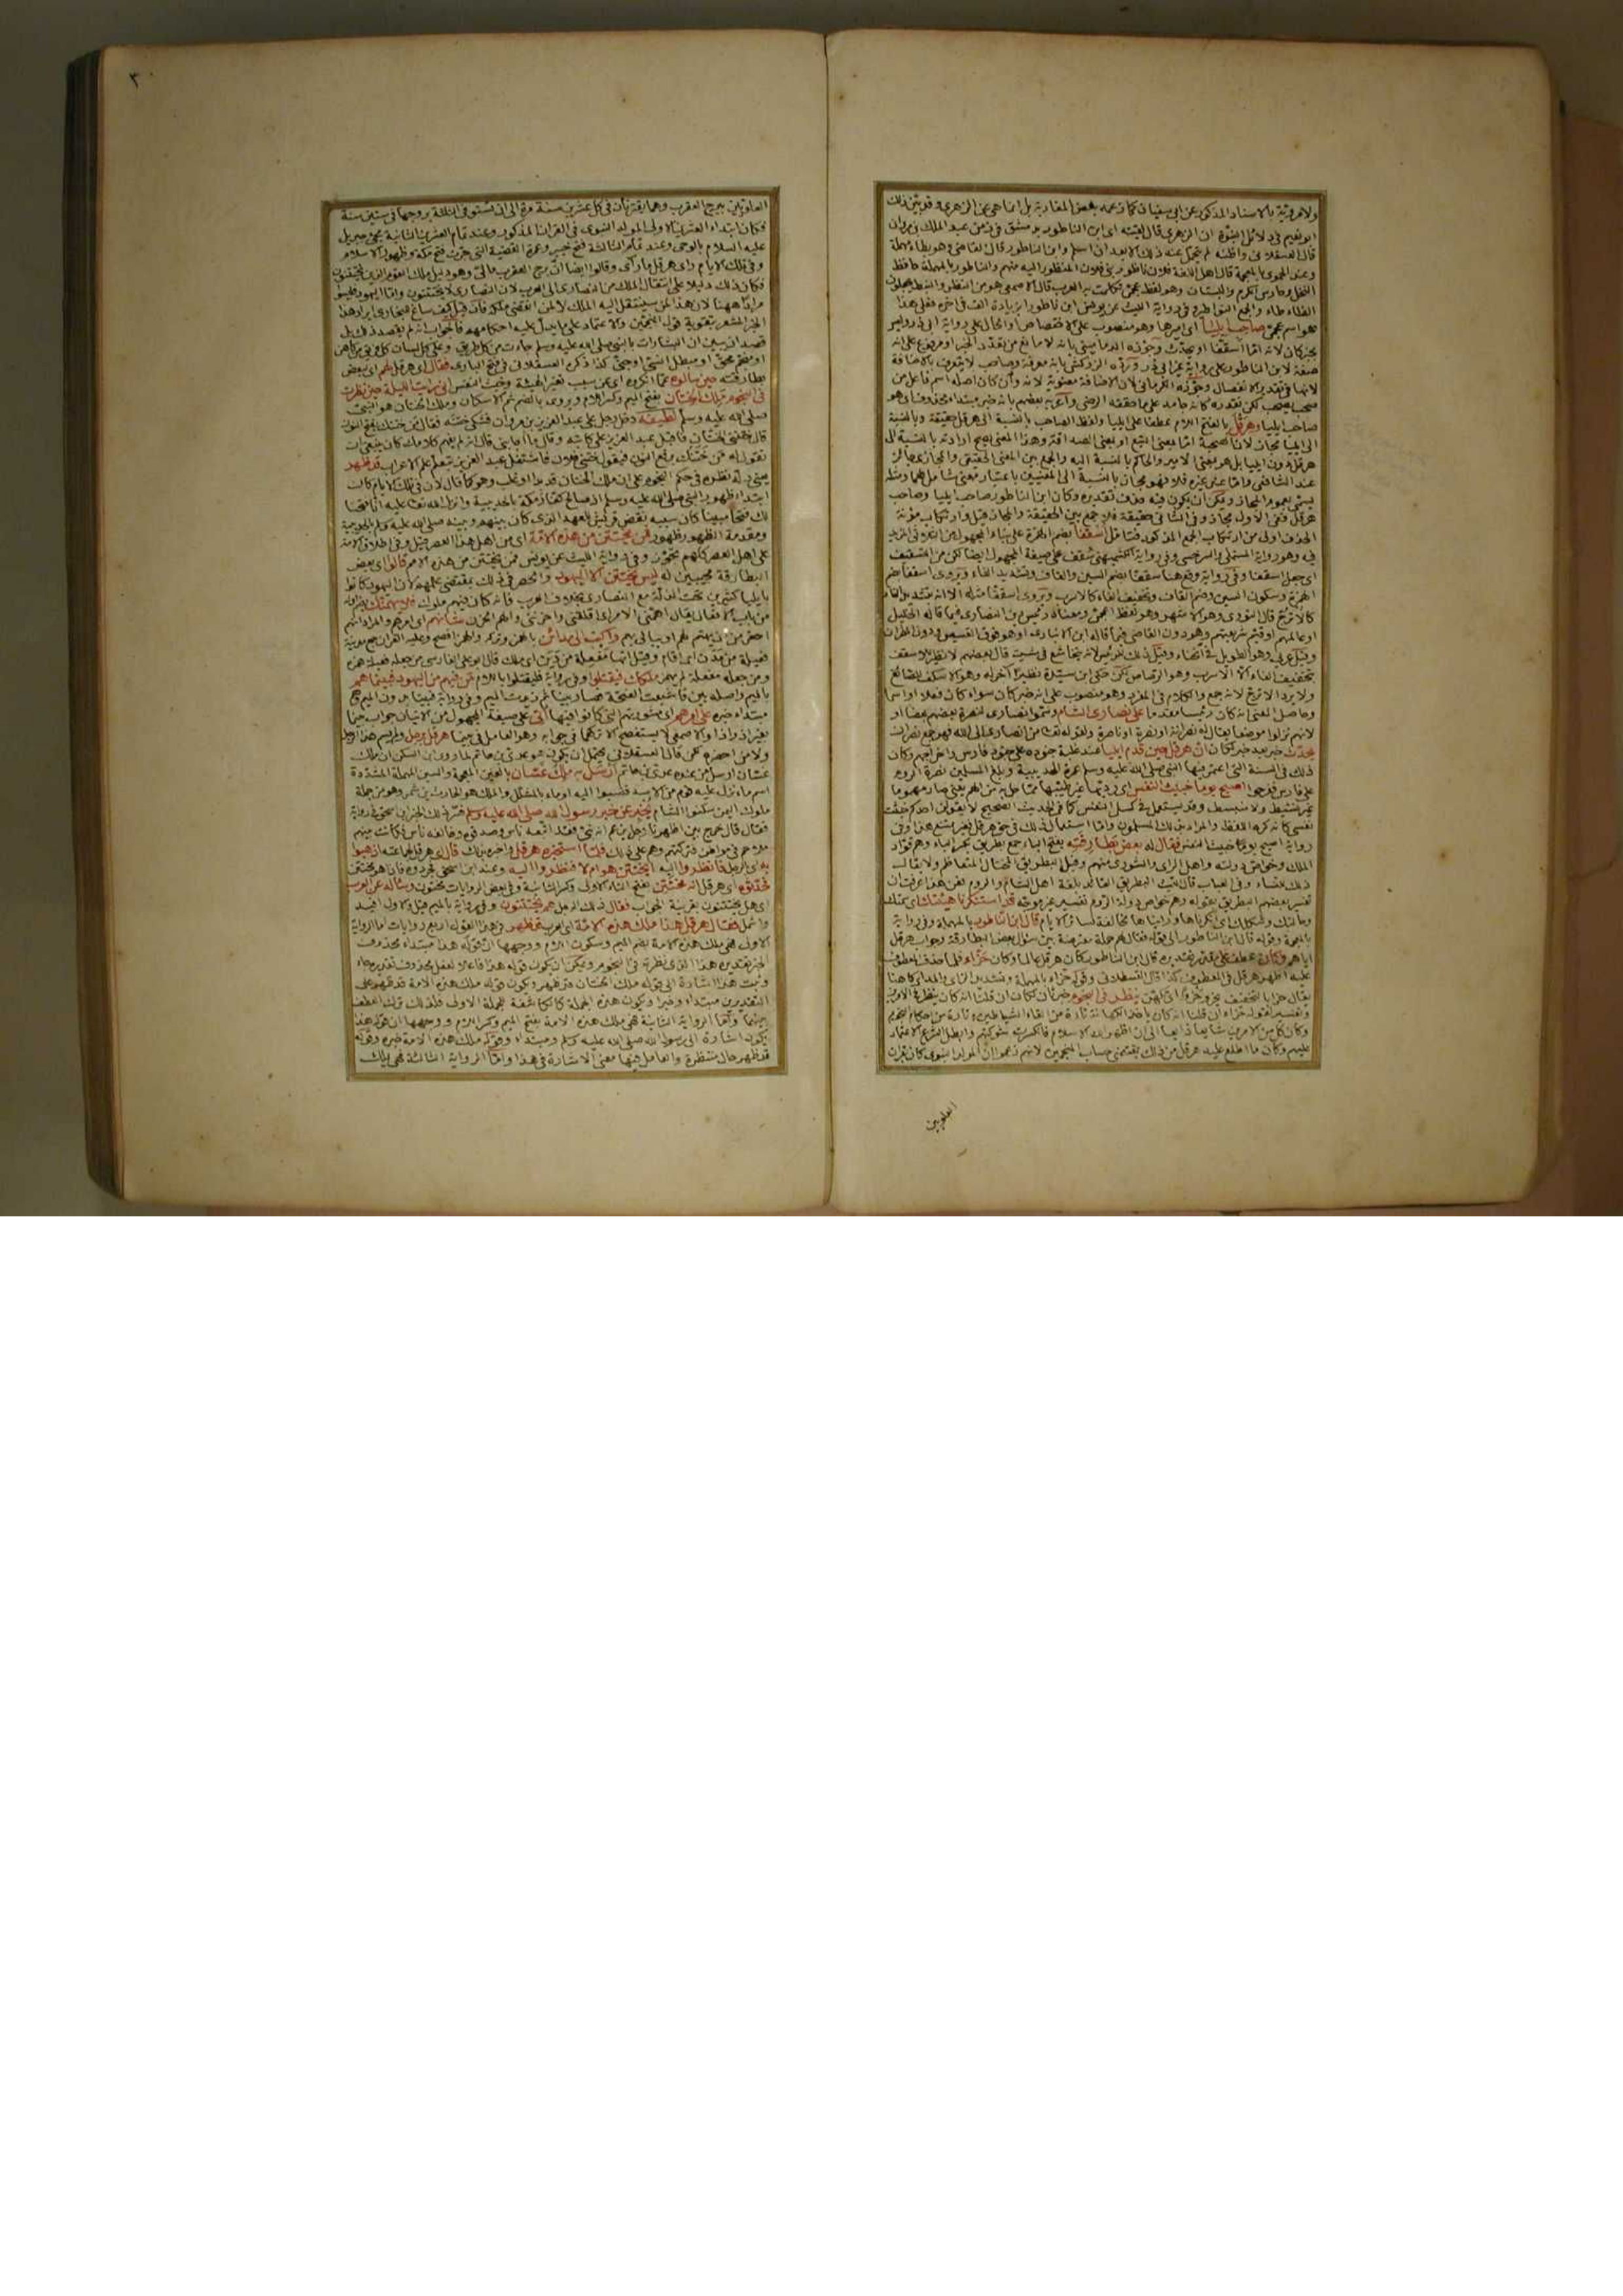 ولا مروية بالاسناد المذكور عن ابي سفيان كما زعمه بعض المغاربة بل انما هي عن الزهري وقد بين ذلك
ابو نعيم في دلائل النبوة ان الزهري قال لقيته اي ابن الناطور بدمشق في زمن عبد الملك بن مروان
قال العسقلاني واظنه لم يتحمل عنه ذلك الا بعد ان اسلم وابن الناطور قال القاضي وهو بطاء مهملة
وعند الحموي بالمعجمة قال اهل اللغة فلان ناظور بني فلان المنظور اليه منهم والناطور بالمهملة حافظ
النخل وحارس الكرم والبستان وهو لفظ عجمي تكلمت به العرب قال الاصمعي هو من النظر والنبط يجعلون
الظاء طاء والجمع النواطير وفي رواية الليث عن يونس ابن ناطورا بزيادة الف في اخره فعلى هذا
هو اسم عجمي صاحب ايليا اي اميرها وهو منصوب على الاختصاص او الحال على رواية ابي ذر
خبر كان لانه اما اسقفا او يحدث وجوزه الدماميني بانه لا مانع من تعدد الخبر او مرفوع على انه
صفة لابن الناطور
صاحب ايليا وهرقل بالفتح اللام عطفا على ايليا ولفظ الصاحب بالنسبة الى هرقل حقيقة وبالنسبة
الى ايليا مجاز
هرقل دون ايليا بل هو بمعنى الامير والحاكم بالنسبة اليه والجمع بين المعنى الحقيقي والمجازي جائز
عند الشافعي واما عند غيره فلا فهو مجاز بالنسبة الى المعنيين باعتبار معنى شامل لهما ومثله
يسمى بعموم المجاز ويمكن ان يكون فيه حذف تقديره وكان ابن الناطور صاحب ايليا وصاحب
هرقل ففي الاول مجاز وفي الثاني حقيقة فلا جمع بين الحقيقة والمجاز قيل وارتكاب مؤنة
الحذف اولى من ارتكاب الجمع المذكور فتامل اسقفا بضم الهمزة على بناء المجهول من الثلاثي المزيد
فيه وهو رواية المستملي والسرخسي وفي رواية الكشميهني سقف على صيغة المجهول ايضا لكن من التسقيف
اي جعل اسقفا وفي رواية وقع هنا سقفا بضم السين والقاف وتشديد الفاء ويروى اسقفا بضم
الهمزة وسكون السين وضم القاف وتخفيف الفاء كالاسرب ويروى اسقفا مثله الا انه بتشديد الفاء
كالاترج قال النووي وهو الاشهر وهو لفظ اعجمي ومعناه رئيس دين النصارى فيما قاله الخليل
او عالمهم او قيم شريعتهم وهو دون القاضي فيما قاله ابن الانباري او هو فوق القسيس ودون المطران
وقيل عربي وهو الطويل في انحناء وقيل ذلك للرئيس لانه يتخاشع في مشيته قال بعضهم لا نظير لاسقف
بتخفيف الفاء الا الاسرب وهو الرصاص لكن حكى ابن سيدة نظيرا اخر له وهو الاسكف للصانع
ولا يرد الاترج لانه جمع والكلام في المفرد وهو منصوب على انه خبر كان سواء كان فعلا او اسما
وحاصل المعنى انه كان رئيسا مقدما على نصارى الشام وسموا نصارى لنصرة بعضهم بعضا او
لانهم نزلوا موضعا يقال له نصرانة او نصرة او ناصرة ولقوله تعالى من انصاري الى الله فهو جمع نصران
يحدث خبر بعد خبر لكان ان هرقل حين قدم ايليا عند غلبة جنوده على جنود فارس واخراجهم وكان
ذلك في السنة التي اعتمر فيها النبي صلى الله عليه وسلم عمرة الحديبية وبلغ المسلمين نصرة الروم
على فارس ففرحوا اصبح يوما خبيث النفس اي رديئها غير طيبها مما حل به من الهم يعني صار مهموما
غير نشيط ولا منبسط وقد يستعمل في كسل النفس كما في الحديث الصحيح لا يقولن احدكم خبثت
نفسي كانه كره اللفظ والمراد بذلك المسلمون واما استعمال ذلك في حق هرقل فغير ممتنع هذا وفي
رواية اصبح يوما خبيث النفس فقال له بعض بطارقته بفتح الباء جمع بطريق بكسر الباء وهم قواد
الملك وخواص دولته واهل الراي والشورى منهم وقيل البطريق المختال المتعاظم ولا يقال
ذلك للنساء وفي العباب قال الليث البطريق القائد بلغة اهل الشام والروم فمن هذا عرفت ان
تفسير بعضهم البطريق بقوله وهم خواص دولة الروم تفسير غير موجه قد استنكرنا هيئتك اي سمتك
وحالتك وشكلك اي انكرناها ورايناها مخالفة لسائر الايام قال ابن الناطور بالمهملة وفي رواية
بالمعجمة وقوله قال ابن الناطور الى قوله فقال لهم جملة معترضة بين سؤال بعض البطارقة وجواب هرقل
اياهم وكان عطف على مقدر تقديره قال ابن الناطور كان هرقل عالما وكان حزاء فلما حذف المعطوف
عليه اظهر هرقل في المعطوف كذا قال القسطلاني وقوله حزاء بالمهملة وتشديد الزاي والمد اي كاهنا
يقال حزا بالتخفيف يحزو حزوا اي تكهن ينظر في النجوم خبر ثان لكان ان قلنا انه كان ينظر في الامرين
وتفسير لقوله حزاء ان قلنا انه كان ياخذ الكهانة تارة من القاء الشياطين وتارة من احكام النجوم
وكان كل من الامرين شايعا ذايعا الى ان اظهر الله الاسلام فانكسرت شوكتهم وابطل الشرع الاعتماد
عليهم وكان ما اطلع عليه هرقل من ذلك بمقتضى حساب المنجمين لانهم زعموا ان المولد النبوي كان بقران
العلويين
٣
العلويين ببرج العقرب وهما يقترنان في كل عشرين سنة مرة الى ان تستوفي الثلثة بروجها في ستين سنة
فكان ابتداء العشرين الاولى المولد النبوي في القران المذكور وعند تمام العشرين الثانية مجيء جبريل
عليه السلام بالوحي وعند تمام الثالثة فتح خيبر وعمرة القضية التي جرت فتح مكة وظهور الاسلام
وفي تلك الايام راى هرقل ما راى وقالوا ايضا ان برج العقرب مائي وهو دليل ملك القوم الذين يختتنون
فكان ذلك دليلا على انتقال الملك من النصارى الى العرب لان النصارى لا يختتنون واما اليهود فليسوا
مرادا ههنا لان هذا لمن سينتقل اليه الملك لا لمن انقضى ملكه فان قيل كيف ساغ للبخاري ايراد هذا
الخبر المشعر بتقوية قول المنجمين والاعتماد على ما يدل عليه احكامهم فالجواب انه لم يقصد ذلك بل
قصد ان يبين ان البشارات بالنبي صلى الله عليه وسلم جاءت من كل طريق وعلى كل لسان كل فريق من كاهن
او منجم محق او مبطل انسي او جني كذا ذكره العسقلاني في فتح الباري فقال اي هرقل لهم اي لبعض
بطارقته حين سالوه عما انكروه اي عن سبب تغير الهيئة وخبث النفس اني رايت الليلة حين نظرت
في النجوم ملك الختان بفتح الميم وكسر اللام ويروى بالضم ثم الاسكان وملك الختان هو النبي
صلى الله عليه وسلم لطيفة دخل رجل على عبد العزيز بن مروان فشكى ختنه فقال من ختنك بفتح النون
قال ختنني الختان فاقبل عبد العزيز على كاتبه وقال ما اجابني قال انه لم يفهم كلامك كان ينبغي ان
تقول له من ختنك برفع النون فيقول ختني فلان فاشتغل عبد العزيز بتعلم علم الاعراب قد ظهر
يعني دله نظره في حكم النجوم على ان ملك الختان قد بدا او غلب وهو كما قال لان في تلك الايام كان
ابتداء ظهور النبي صلى الله عليه وسلم اذ صالح كفار مكة بالحديبية وانزل الله تعالى عليه انا فتحنا
لك فتحا مبينا كان سببه نقض قريش العهد الذي كان بينهم وبينه صلى الله عليه وسلم بالحديبية
ومقدمة الظهور ظهور فمن يختتن من هذه الامة اي من اهل هذا العصر قيل وفي اطلاق الامة
على اهل العصر كلهم تجوز وفي رواية الليث عن يونس فمن يختتن من هذه الامم قالوا اي بعض
البطارقة مجيبين له ليس يختتن الا اليهود وانحصر في ذلك بمقتضى علمهم لان اليهود كانوا
بايليا كثيرين تحت الذلة مع النصارى بخلاف العرب فانه كان فيهم ملوك فلا يهمنك بضم اوله
من باب الافعال يقال اهمني الامر اي اقلقني واحزنني والهم الحزن شانهم اي امرهم والمراد انهم
احقر من ان يهتم لهم او يبالى بهم واكتب الى مدائن بالهمز وتركه والهمز افصح وعليه القران جمع مدينة
فعيلة من مدن اي اقام وقيل انها مفعلة من دين اي ملك قال ابو علي الفارسي من جعله فعيلة همزه
ومن جعله مفعلة لم يهمز ملكك فيقتلوا وفي رواية فليقتلوا باللام من فيهم من اليهود فبينما هم
بالميم واصله بين فاشبعت الفتحة فصار بينا ثم زيدت الميم وفي رواية فبينا بدون الميم هم
مبتداء خبره على امرهم اي مشورتهم التي كانوا فيها اتى على صيغة المجهول من الاتيان جواب بينا
بغير اذ واذا والاصمعي لا يستفصح الا تركهما في جوابه وهو العامل في بينا هرقل برجل ولم يسم هذا الرجل
ولا من احضره لكن قال العسقلاني يحتمل ان يكون هو عدي بن حاتم لما روى ابن السكن ان ملك
غسان ارسل من عنده عدي بن حاتم ارسل به ملك غسان بالغين المعجمة والسين المهملة المشددة
اسم ماء نزل عليه قوم من الازد فنسبوا اليه او ماء بالمشلل والملك هو الحارث بن شمر وهو من جملة
ملوك اليمن سكنوا الشام يخبر عن خبر رسول الله صلى الله عليه وسلم فسر ذلك الخبر ابن اسحق في رواية
فقال قال خرج بين اظهرنا رجل يزعم انه نبي فقد اتبعه ناس وصدقوه وخالفه ناس فكانت بينهم
ملاحم في مواطن فتركتهم وهم على ذلك فلما استخبره هرقل واخبره بذلك قال اي هرقل لجماعته اذهبوا
به اي الرجل فانظروا اليه امختتن هو ام لا فنظروا اليه وعند ابن اسحق فجردوه فاذا هو مختتن
فحدثوه اي هرقل انه مختتن بفتح التاء الاولى وكسر الثانية وفي بعض الروايات مختون وساله عن العرب
اي هل يختتنون بقرينة الجواب فقال ذلك الرجل هم يختتنون وفي رواية بالميم قيل والاول افيد
واشمل فقال هرقل هذا ملك هذه الامة اي العرب قد ظهر في هذا القول اربع روايات اما الرواية
الاولى فهي ملك هذه الامة بضم الميم وسكون اللام ووجهها ان قوله هذا مبتداء محذوف
الخبر تقديره هذا الذي نظرته في النجوم ويمكن ان يكون قوله هذا فاعلا لفعل محذوف تقديره جاء
وثبت هذا اشارة الى قوله ملك الختان قد ظهر ويكون قوله ملك هذه الامة قد ظهر على
التقديرين مبتداء وخبرا ويكون هذه الجملة كالكاشفة للجملة الاولى فلذلك ترك العطف
بينهما واما الرواية الثانية فهي ملك هذه الامة بفتح الميم وكسر اللام ووجهها ان قوله هذا
يكون اشارة الى رسول الله صلى الله عليه وسلم ومبتداء وقوله ملك هذه الامة خبره وقوله
قد ظهر حال منتظرة والعامل فيها معنى الاشارة في هذا واما الرواية الثالثة فهي يملك